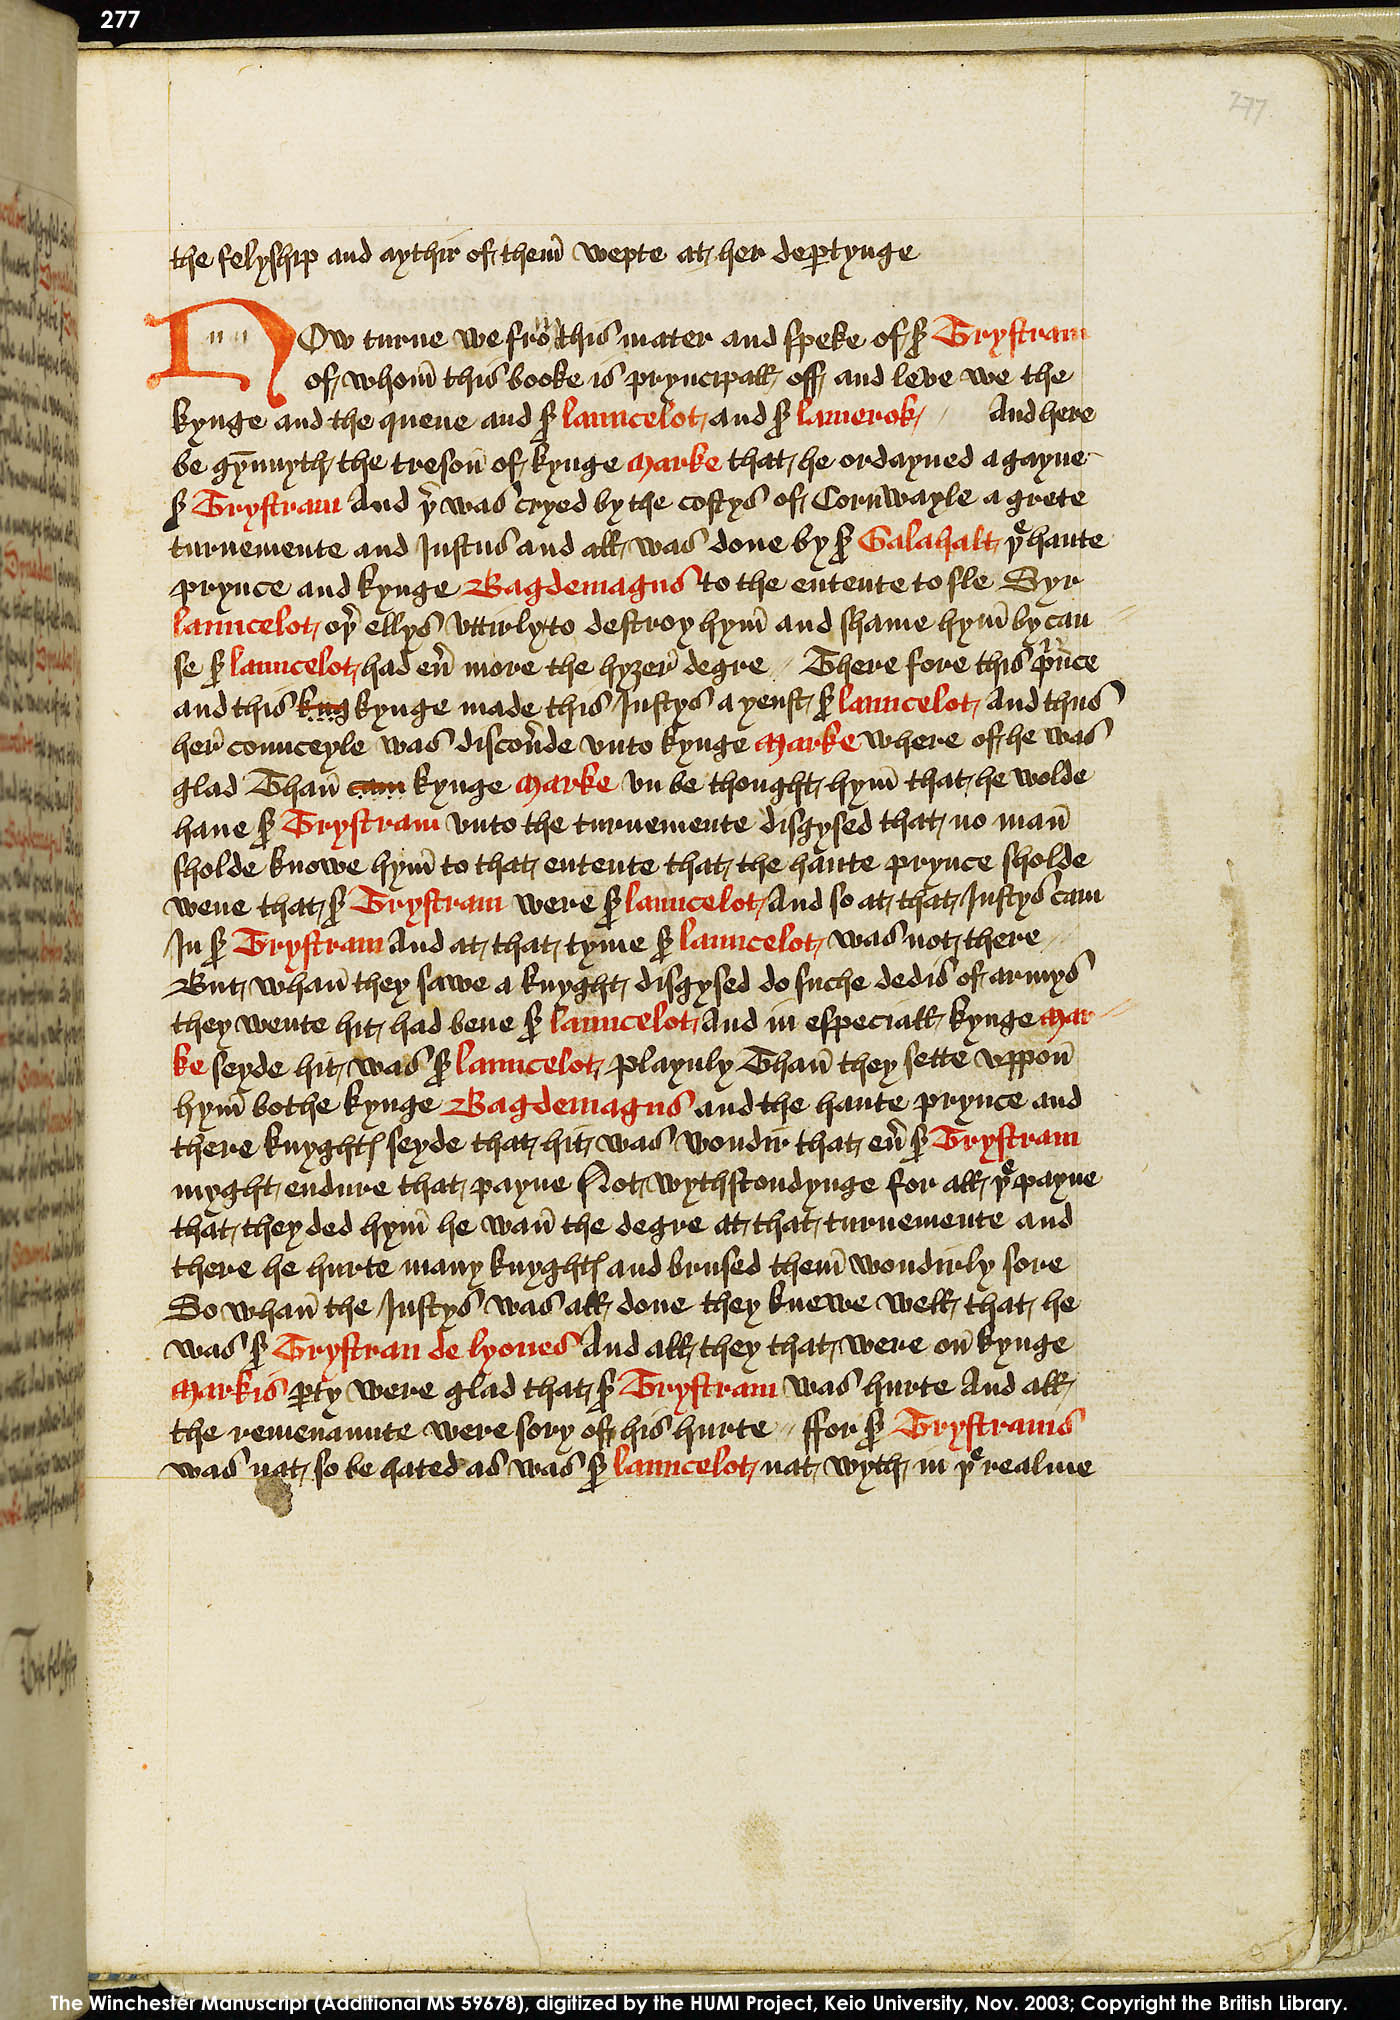 277
277
the felyship and aythir of them̄ wepte at her deꝑtynge
NOw turne we frō this mater and speke of sꝛ Trystram
of whom̄ this booke is pryncipall off and leve we the
kynge and the quene and sꝛ launcelot and sꝛ lamerok And here
be gȳnnyth the treson̄ of kynge Marke that he ordayned agayne
sꝛ Trystram And þͬ was cryed by the costys of Cornwayle a grete
turnemente and Justus and all was done by sꝛ Galahalt þᵉ haute
prynce and kynge Bagdemagus to the entente to sle Syr
launcelot oþͬ ellys vttirly to destroy hym̄ and shame hym̄ by cau
se sꝛ launcelot had eū more the hyȝer degre There fore this prince
and this kng kynge made this Justys a yenst sꝛ launcelot And thus
her counceyle was discoūde vnto kynge Marke where of he was
glad Than̄ cam kynge Marke vn be thought hym̄ that he wolde
haue sꝛ Trystram vnto the turnemente disgysed that no man̄
sholde knowe hym̄ to that entente that the haute prynce sholde
wene that sꝛ Trystram were sꝛ launcelot And so at that Justys cam
In sꝛ Trystram And at that tyme sꝛ launcelot was not there
But whan̄ they sawe a knyght disgysed do suche dedis of armys
they wente hit had bene sꝛ launcelot And in especiall kynge Mar
ke seyde hit was sꝛ launcelot playnly Than̄ they sette vppon̄
hym̄ bothe kynge Bagdemagus and the haute prynce and
there knyghtꝭ seyde that hit was wondir that eū sꝛ Trystram
myght endure that payne Not wythstondynge for all þᵉ payne
that they ded hym̄ he wan̄ the degre at that turnemente and
there he hurte many knyghtꝭ and brused them̄ wondirly sore
So whan̄ the Justys was all done they knewe well that he
was sꝛ Trystran de lyones And all they that were on̄ kynge
Markis ꝑty were glad that sꝛ Trystram was hurte And all
the remenaunte were sory of his hurte ffor sꝛ Trystrams
was nat so be hated as was sꝛ launcelot nat wyth in þᵉ realme
The Winchester Manuscript (Additional MS 59678), digitized by the HUMI Project, Keio University, Nov. 2003; Copyright the British Library.